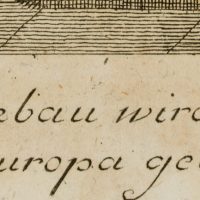 ebau wird
uropa ge